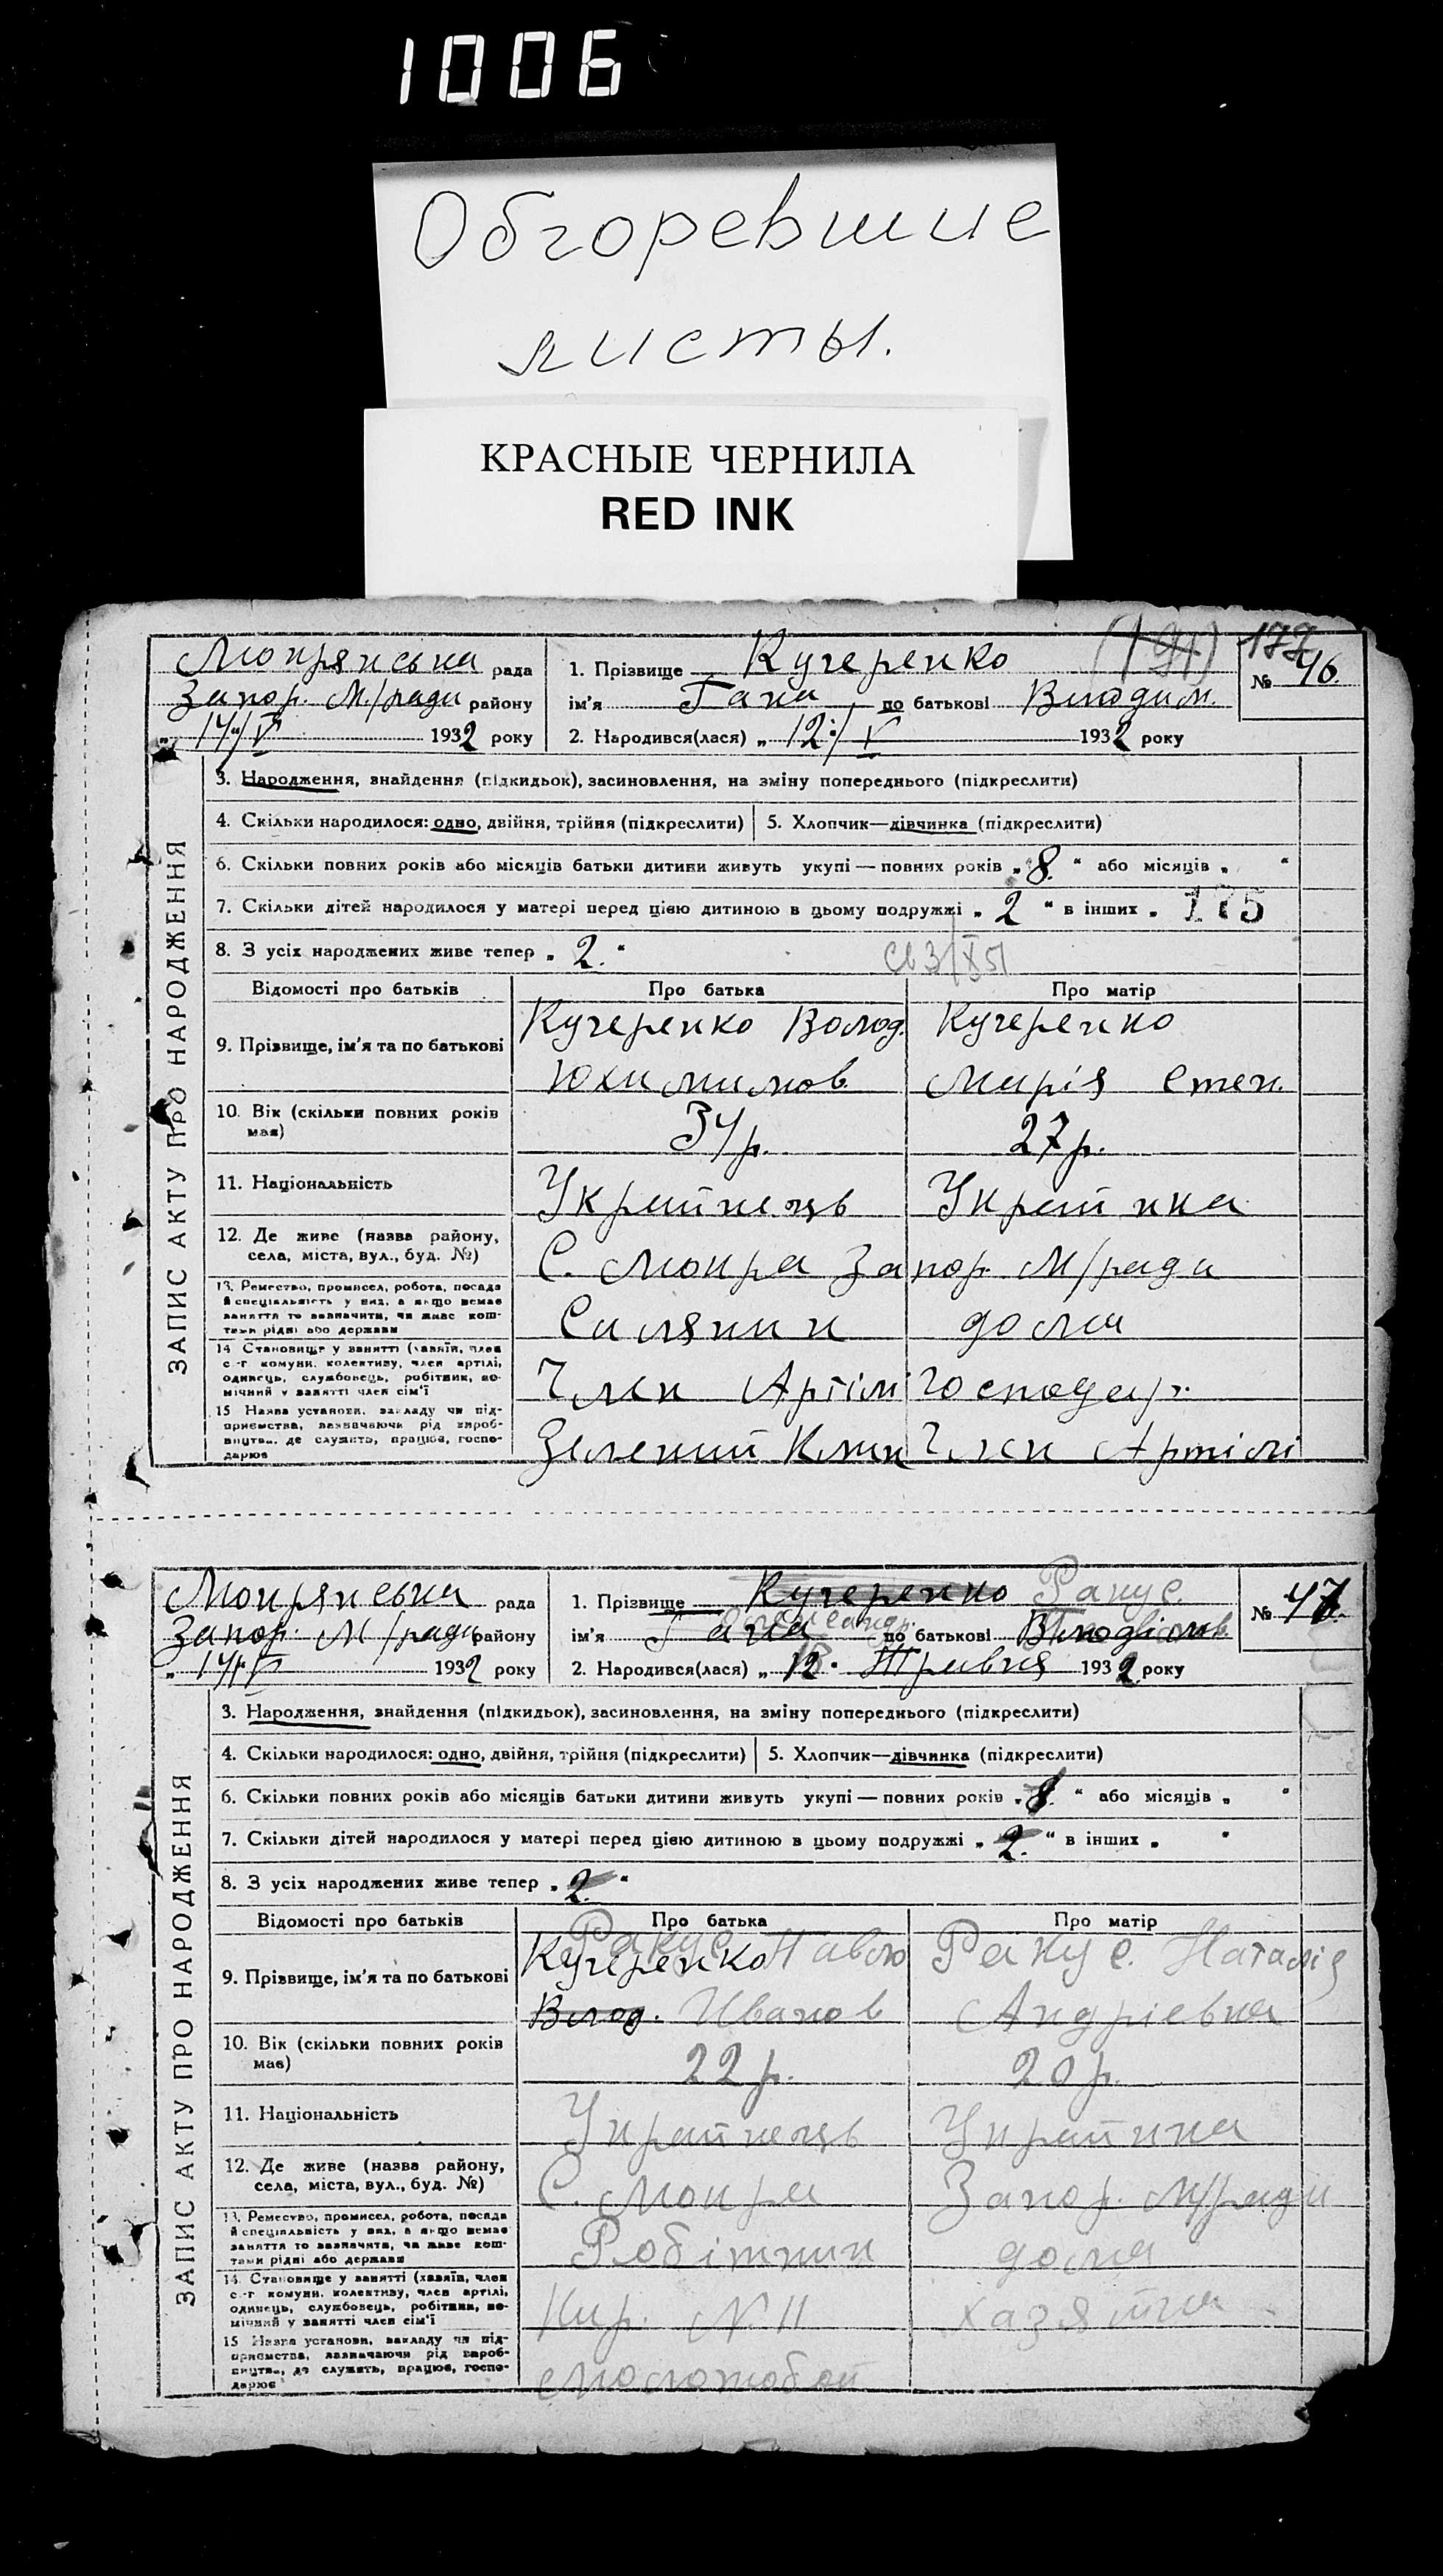 1006
Обгоревшие
листы.
КРАСНЫЕ ЧЕРНИЛА
RED INK
Мокрянська рада
Запор. М/ради району
„ 14/V 1932 року
1. Прізвище Кучеренко
177
ім'я Гана по батькові Володим.
2. Народився(лася) „ 12 / V 1932 року
№ 46.
ЗАПИС АКТУ ПРО НАРОДЖЕННЯ
3. Народження, знайдення (підкидьок), засиновлення, на зміну попереднього (підкреслити)
4. Скільки народилося: одно, двійня, трійня (підкреслити) 5. Хлопчик—дівчинка (підкреслити)
6. Скільки повних років або місяців батьки дитини живуть укупі — повних років „ 8. “ або місяців „ “
7. Скільки дітей народилося у матері перед цією дитиною в цьому подружжі „ 2 “ в інших „ 175
8. З усіх народжених живе тепер „ 2. “
Св 3/X 51
Відомості про батьків Про батька Про матір
9. Прізвище, ім'я та по батькові Кучеренко Волод. Кучеренко
Юхимимов Марія Степ.
10. Вік (скільки повних років має) 34 р. 27 р.
11. Національність Українець Українка
12. Де живе (назва району, села, міста, вул., буд. №) С. Мокра Запор. М/ради
13. Ремество, промисел, робота, посада й спеціяльність у них, а якщо немає заняття то зазначити, чи живе коштами рідні або держави Силянин дома
14 Становище у занятті (хазяїн, член с.-г комуни, колективу, член артілі, одинець, службовець, робітник, помічний у занятті член сім'ї Член Артілі Господар.
15 Назва установи, закладу чи підприємства, зазначаючи рід виробництва, де служить, працює, господарює Зелений Клин Член Артілі
Мокрянська рада
Запор. М/ради району
„ 14/V 1932 року
1. Прізвище Кучеренко Ракус
ім'я Гана Олександр. по батькові Володімов.
2. Народився(лася) „ 12 Травня 1932 року
№ 47.
ЗАПИС АКТУ ПРО НАРОДЖЕННЯ
3. Народження, знайдення (підкидьок), засиновлення, на зміну попереднього (підкреслити)
4. Скільки народилося: одно, двійня, трійня (підкреслити) 5. Хлопчик—дівчинка (підкреслити)
6. Скільки повних років або місяців батьки дитини живуть укупі — повних років „ 8. “ або місяців „ “
7. Скільки дітей народилося у матері перед цією дитиною в цьому подружжі „ 2. “ в інших „ “
8. З усіх народжених живе тепер „ 2. “
Відомості про батьків Про батька Про матір
9. Прізвище, ім'я та по батькові Ракус Кучеренко Павло Ракус. Наталія
Волод. Иванов Андріевна
10. Вік (скільки повних років має) 22 р. 20 р.
11. Національність Українець Українка
12. Де живе (назва району, села, міста, вул., буд. №) С. Мокра Запор. М/ради
13. Ремество, промисел, робота, посада й спеціяльність у них, а якщо немає заняття то зазначити, чи живе коштами рідні або держави Робітник дома
14. Становище у занятті (хазяїн, член с.-г комуни, колективу, член артілі, одинець, службовець, робітник, помічний у занятті член сім'ї Кар. № 11 хазяйка
15 Назва установи, закладу чи підприємства, зазначаючи рід виробництва, де служить, працює, господарює Молотобой